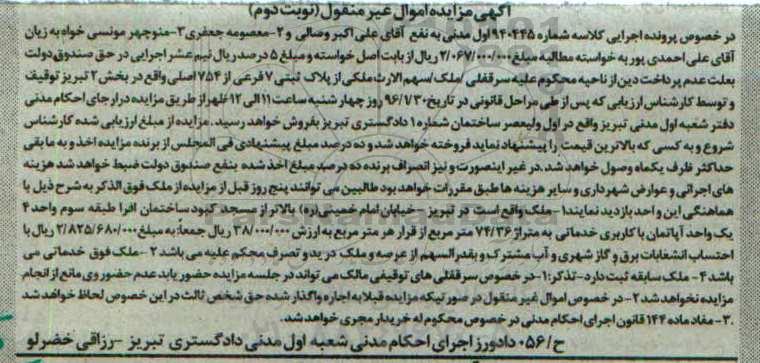 آگهی مزایده اموال غیر منقول (نوبت دوم)
در خصوص پرونده اجرایی کلاسه شماره ۹۴۰۴۴۵ اول مدنی به نفع آقای علی اکبر وصالی و ۲-معصومه جعفری ۳-منوچهر مونسی خواه به زیان
آقای علی احمدی پور به خواسته مطالبه مبلغ ۲/۰۶۷/۰۰۰/۰۰۰ ریال از بابت اصل خواسته و مبلغ ۵ درصد ریال نیم عشر اجرایی در حق صندوق دولت
بعلت عدم پرداخت دین از ناحیه محکوم علیه سرقفلی /ملک/سهم الارث ملکی از پلاک ثبتی ۷ فرعی از ۷۵۴ اصلی واقع در بخش ۲ تبریز توقیف
و توسط کارشناس ارزیابی که پس از طی مراحل قانونی در تاریخ ۹۶/۷/۳۰ روز چهارشنبه ساعت ۱۱ الی ۱۲ ظهر از طریق مزایده در جای احکام مدنی
دفتر شعبه اول مدنی تبریز واقع در اول ولیعصر ساختمان شماره ۱ دادگستری تبریز بفروش خواهد رسید. مزایده از مبلغ ارزیابی شده کارشناس
شروع و به کسی که بالاترین قیمت را پیشنهاد نماید فروخته خواهد شد و ده درصد مبلغ پیشنهادی فی المجلس از برنده مزایده اخذ و به مابقی
حداکثر ظرف یکماه وصول خواهد شد. در غیر اینصورت و نیز انصراف برنده ده درصد مبلغ اخذ شده بنفع صندوق دولت ضبط خواهد شد هزینه
های اجرائی و عوارض شهرداری و سایر هزینه ها طبق مقررات خواهد بود طالبین می توانند پنج روز قبل از مزایده از ملک فوق الذکر به شرح ذیل با
هماهنگی این واحد بازدید نمایند ۱-ملک واقع است در تبریز - خیابان امام خمینی (ره) بالاتر از مسجد کبود ساختمان افرا طبقه سوم واحد ۴
یک واحد آپاتمان با کاربری خدماتی به متراژ ۷۴/۳۶ متر مربع از قرار هر متر مربع به ارزش ۳۸/۰۰۰/۰۰۰ ریال جمعاً به مبلغ ۲/۸۲۵/۶۸۰/۰۰۰ ریال با
احتساب انشعابات برق و گاز شهری و آب مشترک و بقدر السهم از عرصه و ملک در ید و تصرف محکم علیه می باشد ۲-ملک فوق خدماتی می
باشد ۴-ملک سابقه ثبت دارد-تذکر: ۱-در خصوص سرقفلی های توقیفی مالک می تواند در جلسه مزایده حضور یابد عدم حضور وی مانع از انجام
مزایده نخواهد شد ۲-در خصوص اموال غیر منقول در صورتیکه مزایده قبلا به اجاره واگذار شده حق شخص ثالث در این خصوص لحاظ خواهد شد
۳.-مفاد ماده ۱۴۴ قانون اجرای احکام مدنی در خصوص محکوم له خریدار مجری خواهد شد.
ح/۰۵۶ دادورز اجرای احکام مدنی شعبه اول مدنی دادگستری تبریز -رزاقی خضرلو